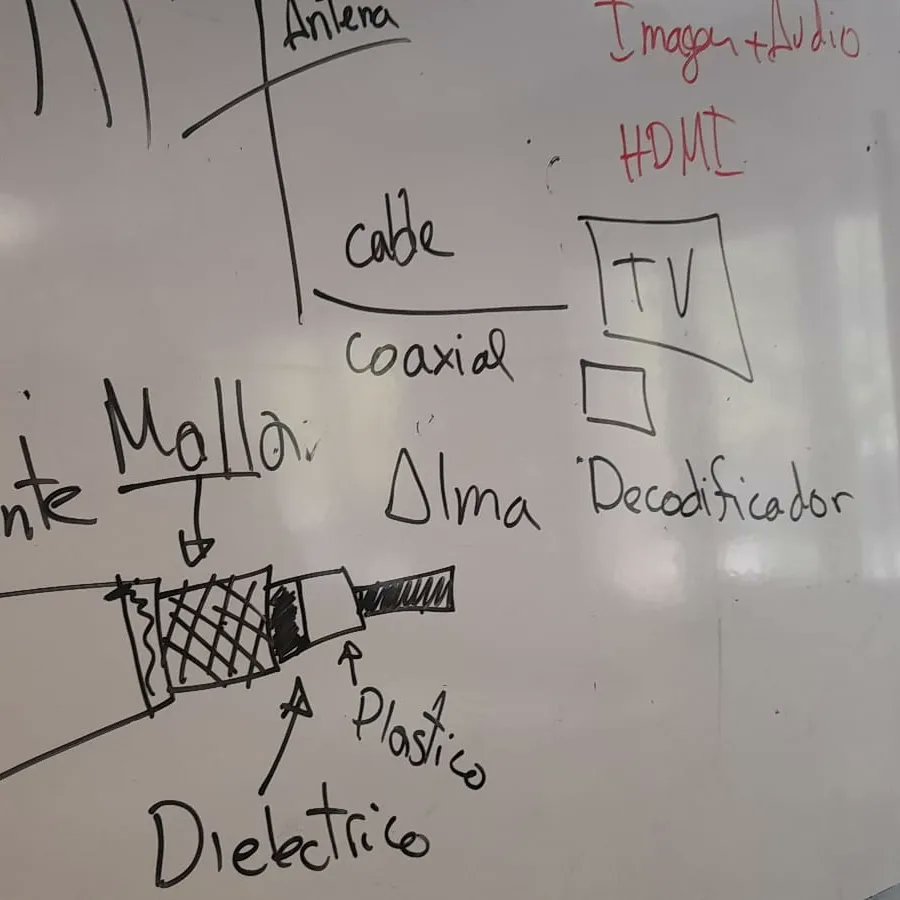 Antena
Imagen + Audio
HDMI
cable
TV
coaxial
Malla
Alma
Decodificador
Plastico
Dielectrico